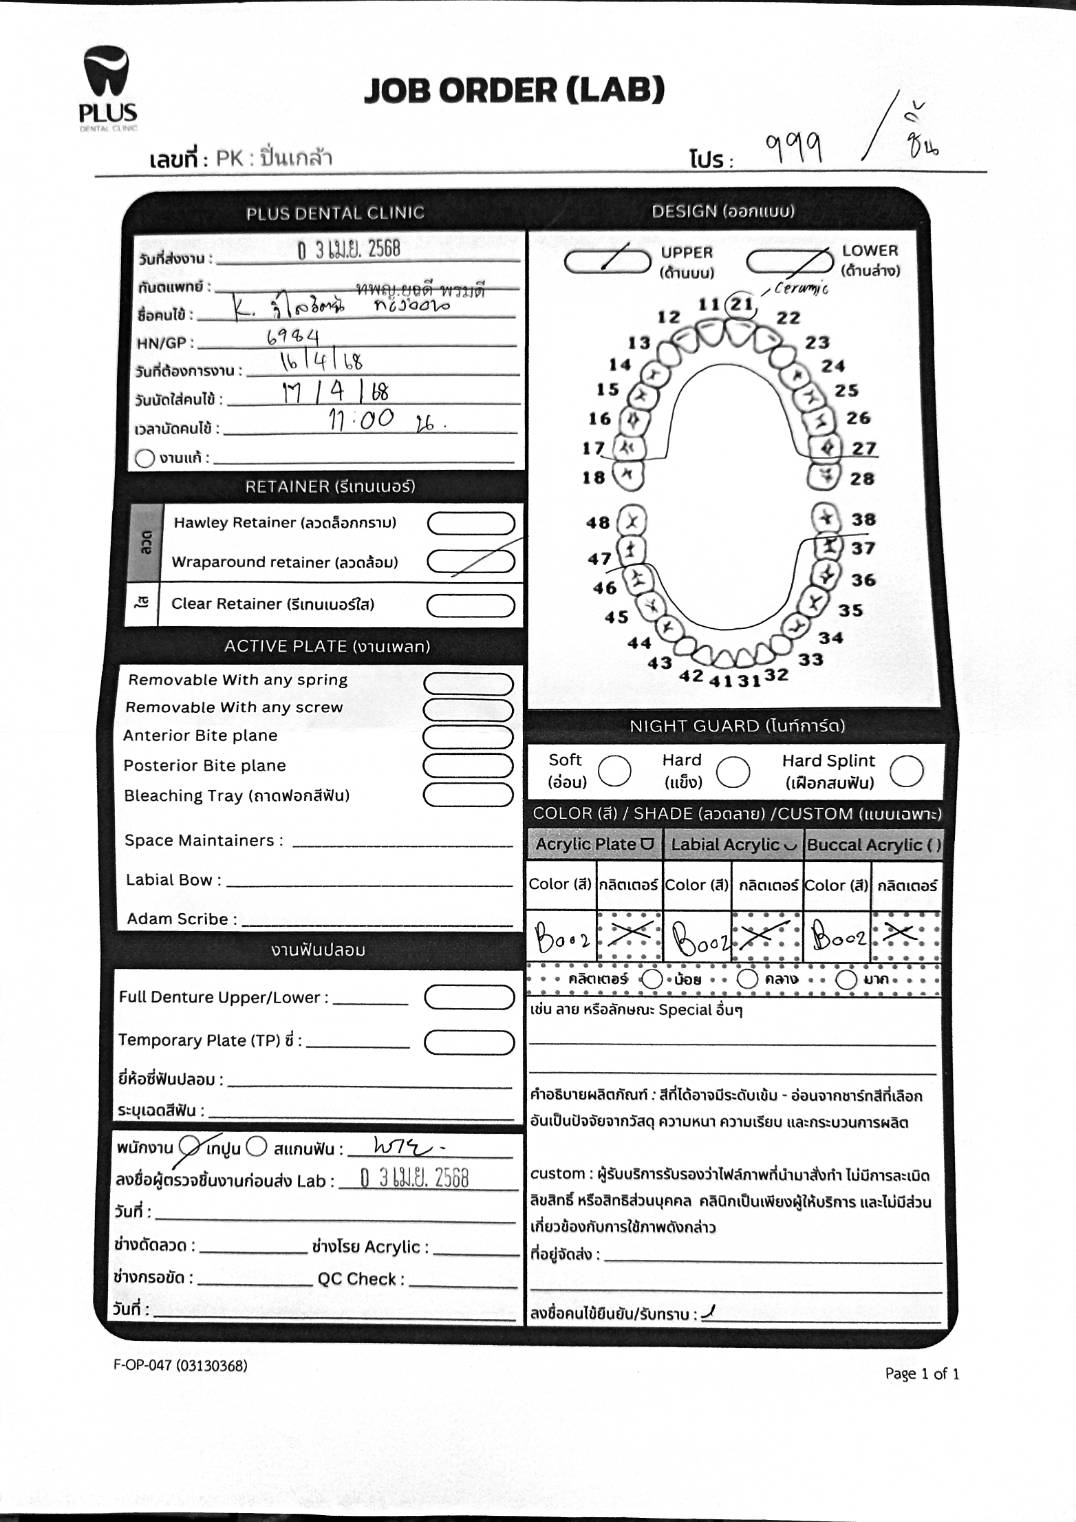 PLUS
DENTAL CLINIC
JOB ORDER (LAB)
เลขที่ : PK : ปิ่นเกล้า
โปร : 999 / ชิ้น
PLUS DENTAL CLINIC
วันที่ส่งงาน : 0 3 เม.ย. 2568
ทันตแพทย์ : ทพญ.ยุอดี พรมดี
ชื่อคนไข้ : K.
HN/GP : 6984
วันที่ต้องการงาน : 16/4/68
วันนัดใส่คนไข้ : 17/4/68
เวลานัดคนไข้ : 11:00 น.
งานแก้ :
RETAINER (รีเทนเนอร์)
ลวด
Hawley Retainer (ลวดล็อกกราม)
Wraparound retainer (ลวดล้อม)
ใส
Clear Retainer (รีเทนเนอร์ใส)
ACTIVE PLATE (งานเพลท)
Removable With any spring
Removable With any screw
Anterior Bite plane
Posterior Bite plane
Bleaching Tray (ถาดฟอกสีฟัน)
Space Maintainers :
Labial Bow :
Adam Scribe :
งานฟันปลอม
Full Denture Upper/Lower :
Temporary Plate (TP) ซี่ :
ยี่ห้อซี่ฟันปลอม :
ระบุเฉดสีฟัน :
พนักงาน เทปูน สแกนฟัน :
ลงชื่อผู้ตรวจชิ้นงานก่อนส่ง Lab : 0 3 เม.ย. 2568
วันที่ :
ช่างดัดลวด : ช่างโรย Acrylic :
ช่างกรอขัด : QC Check :
วันที่ :
DESIGN (ออกแบบ)
UPPER
(ด้านบน)
LOWER
(ด้านล่าง)
Ceramic
11 21
12 22
13 23
14 24
15 25
16 26
17 27
18 28
48 38
47 37
46 36
45 35
44 34
43 33
42 41 31 32
NIGHT GUARD (ไนท์การ์ด)
Soft
(อ่อน)
Hard
(แข็ง)
Hard Splint
(เฝือกสบฟัน)
COLOR (สี) / SHADE (ลวดลาย) /CUSTOM (แบบเฉพาะ)
Acrylic Plate Labial Acrylic Buccal Acrylic ( )
Color (สี) กลิตเตอร์ Color (สี) กลิตเตอร์ Color (สี) กลิตเตอร์
B002 B002 B002
กลิตเตอร์ น้อย กลาง มาก
เช่น ลาย หรือลักษณะ Special อื่นๆ
คำอธิบายผลิตภัณฑ์ : สีที่ได้อาจมีระดับเข้ม - อ่อนจากชาร์ทสีที่เลือก
อันเป็นปัจจัยจากวัสดุ ความหนา ความเรียบ และกระบวนการผลิต
custom : ผู้รับบริการรับรองว่าไฟล์ภาพที่นำมาสั่งทำ ไม่มีการละเมิด
ลิขสิทธิ์ หรือสิทธิส่วนบุคคล คลินิกเป็นเพียงผู้ให้บริการ และไม่มีส่วน
เกี่ยวข้องกับการใช้ภาพดังกล่าว
ที่อยู่จัดส่ง :
ลงชื่อคนไข้ยืนยัน/รับทราบ :
F-OP-047 (03130368)
Page 1 of 1